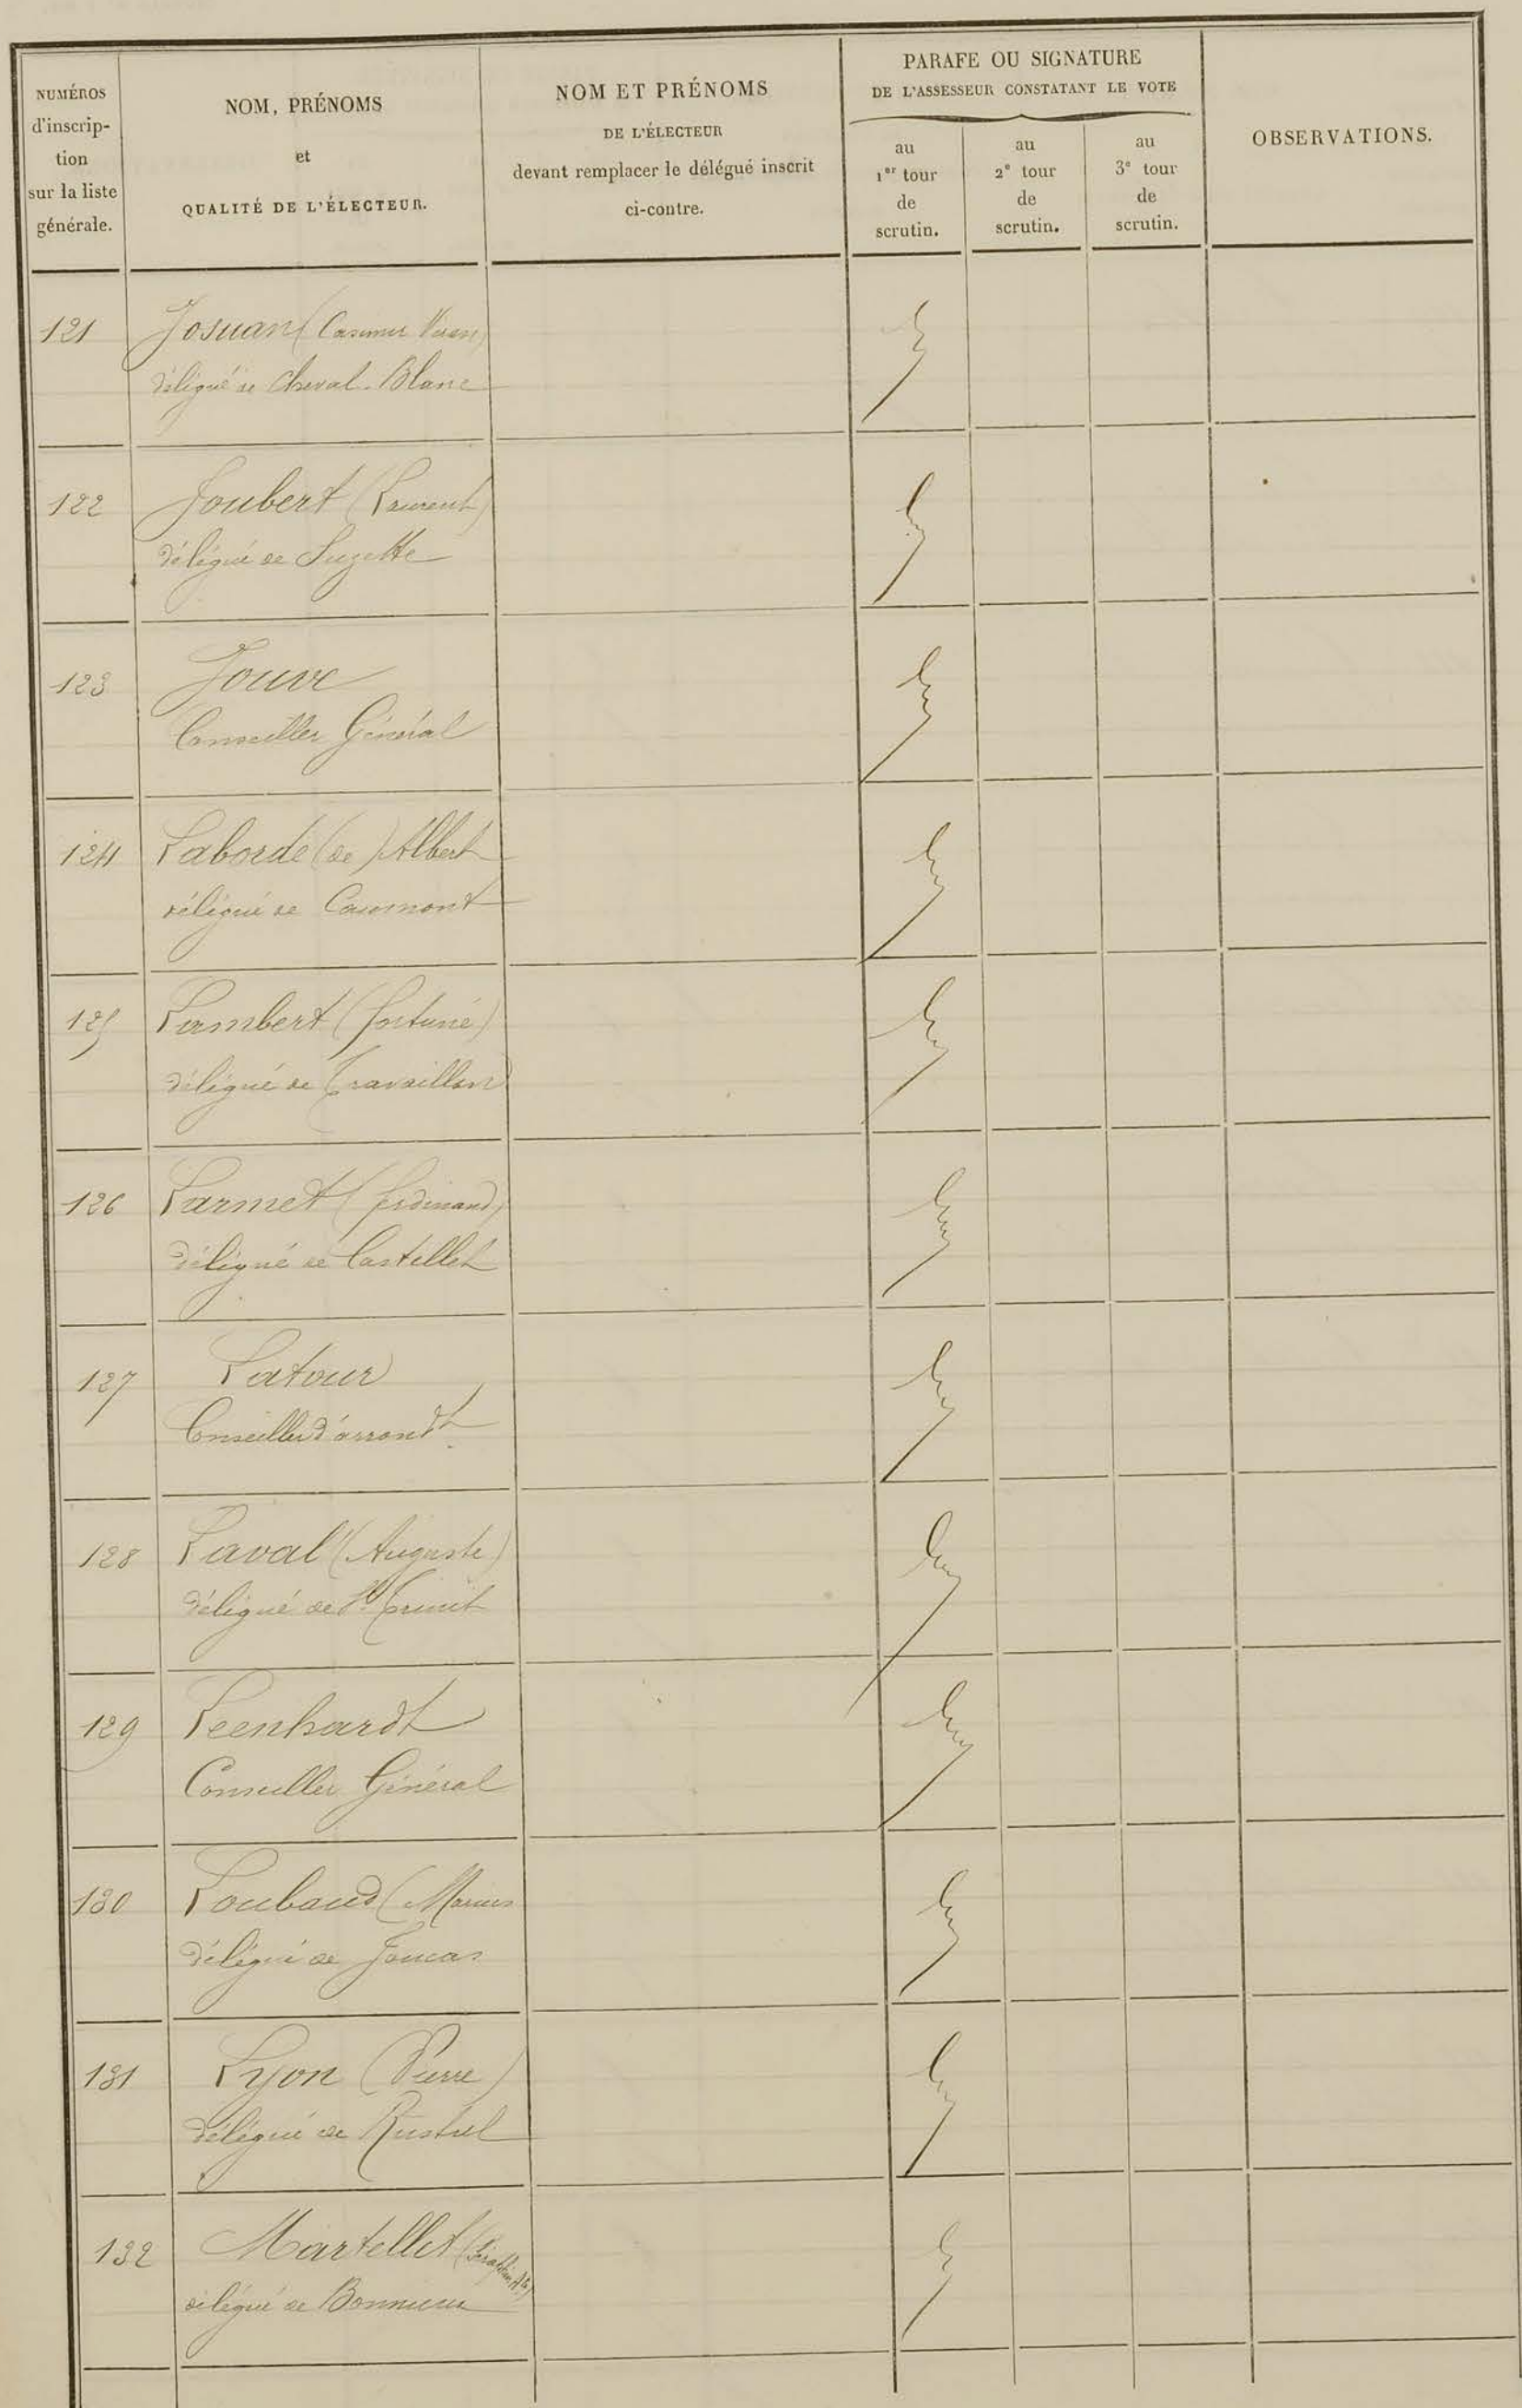 NUMÉROS
d'inscrip-
tion
sur la liste
générale.
NOM, PRÉNOMS
et
QUALITÉ DE L'ÉLECTEUR.
NOM ET PRÉNOMS
DE L'ÉLECTEUR
devant remplacer le délégué inscrit
ci-contre.
PARAFE OU SIGNATURE
DE L'ASSESSEUR CONSTATANT LE VOTE
au
1er tour
de
scrutin.
au
2e tour
de
scrutin.
au
3e tour
de
scrutin.
OBSERVATIONS.
121 Josuan (Casimir
délégué de Cheval-Blanc
122 Joubert (Laurent)
délégué de Suzette
123 Jouve
Conseiller Général
124 Laborde (de) Albert
délégué de Caumont
125 Lambert (fortuné)
délégué de Travaillan
126 Larmet (ferdinand)
délégué de Castellet
127 Latour
Conseiller d'arrondt
128 Laval (Auguste)
délégué de St Trinit
129 Leenhardt
Conseiller Général
130 Loubaud (Marius
délégué de Joucas
131 Lyon (Pierre)
délégué de Rustrel
132 Martellet (
délégué de Bonnieux